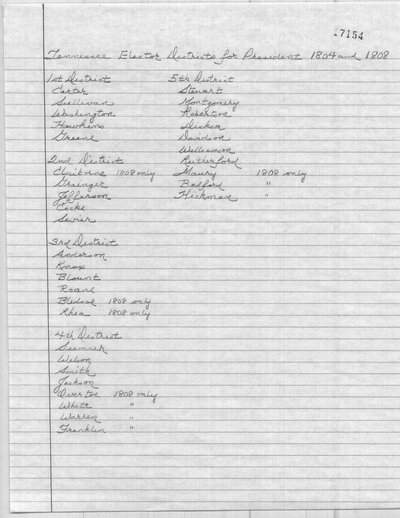 17154
Tennessee Elector Districts for President 1804 and 1808
1st District
Carter
Sullivan
Washington
Hawkins
Greene
2nd District
Claiborne 1808 only
Grainger
Jefferson
Cocke
Sevier
3rd District
Anderson
Knox
Blount
Roane
Bledsoe 1808 only
Rhea 1808 only
4th District
Sumner
Wilson
Smith
Jackson
Overton 1808 only
White "
Warren "
Franklin "
5th District
Stewart
Montgomery
Robertson
Dickson
Davidson
Williamson
Rutherford
Maury 1808 only
Bedford "
Hickman "